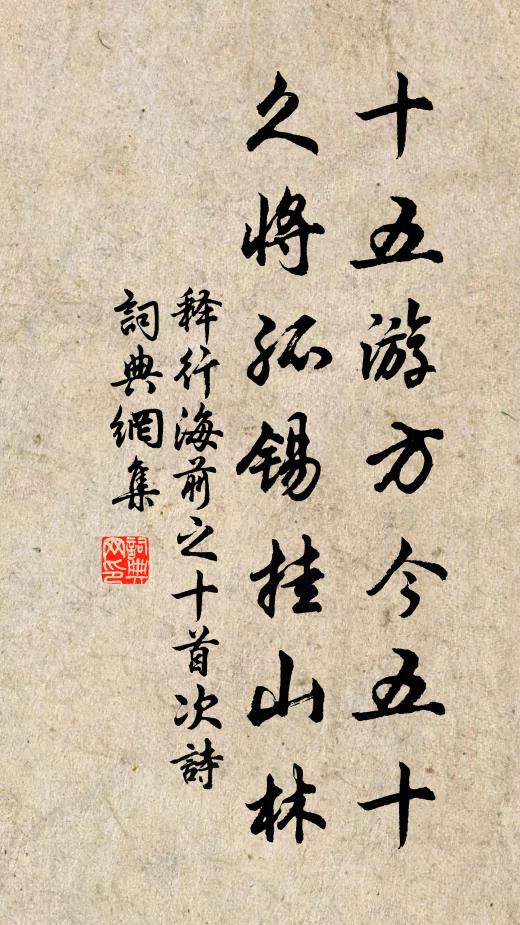 十五游方今五十
久將孤锡挂山林
释行海前之十首次詩
詞典網集
詞典网印